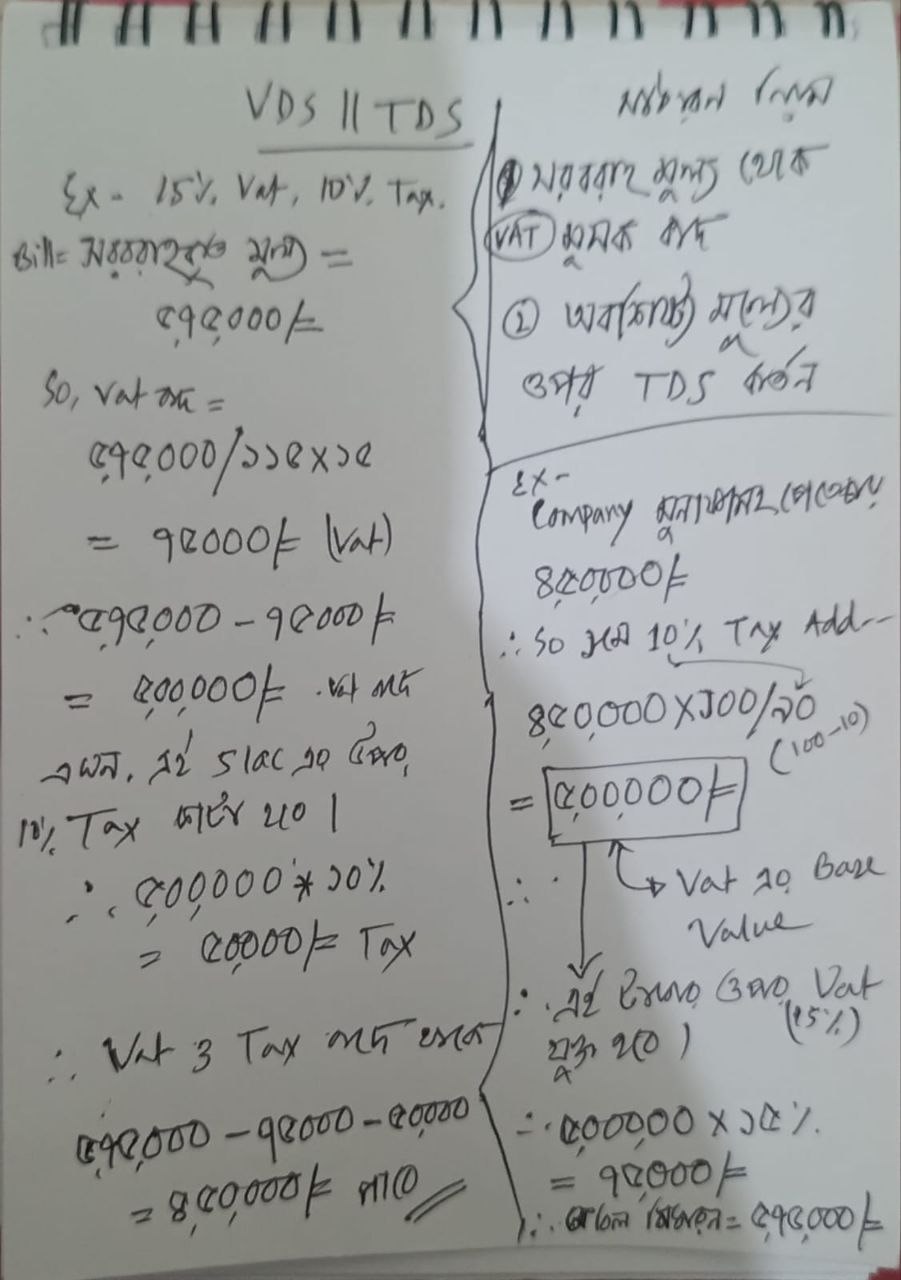 VDS || TDS
Ex - 15% Vat, 10% Tax.
Bill = সরবরাহকৃত মূল্য =
৫৭৫০০০/=
So, Vat বাদ =
৫৭৫০০০/১১৫X১৫
= ৭৫০০০/= (Vat)
∴ ৫৭৫০০০ - ৭৫০০০/=
= ৫০০০০০/= Vat বাদে
এখন, এই 5 lac এর উপর,
10% Tax কাটা হবে।
∴ ৫০০০০০ * ১০%
= ৫০০০০/= Tax
∴ Vat ও Tax বাদে
৫৭৫০০০ - ৭৫০০০ - ৫০০০০
= ৪৫০০০০/= পাবে
নিয়ম
① সরবরাহ মূল্য থেকে
VAT মূসক বাদ
② অবশিষ্ট মূল্যের
ওপর TDS কর্তন
Ex-
Company মুনাফাসহ
৪৫০০০০/=
∴ So 10% Tax Add--
৪৫০০০০X১০০/৯০
(100-10)
= ৫০০০০০/=
∴ Vat এর Base
Value
∴ এই ওপর Vat
(15%)
যুক্ত হবে।
∴ ৫০০০০০ X ১৫%.
= ৭৫০০০/=
∴ = ৫৭৫০০০/=